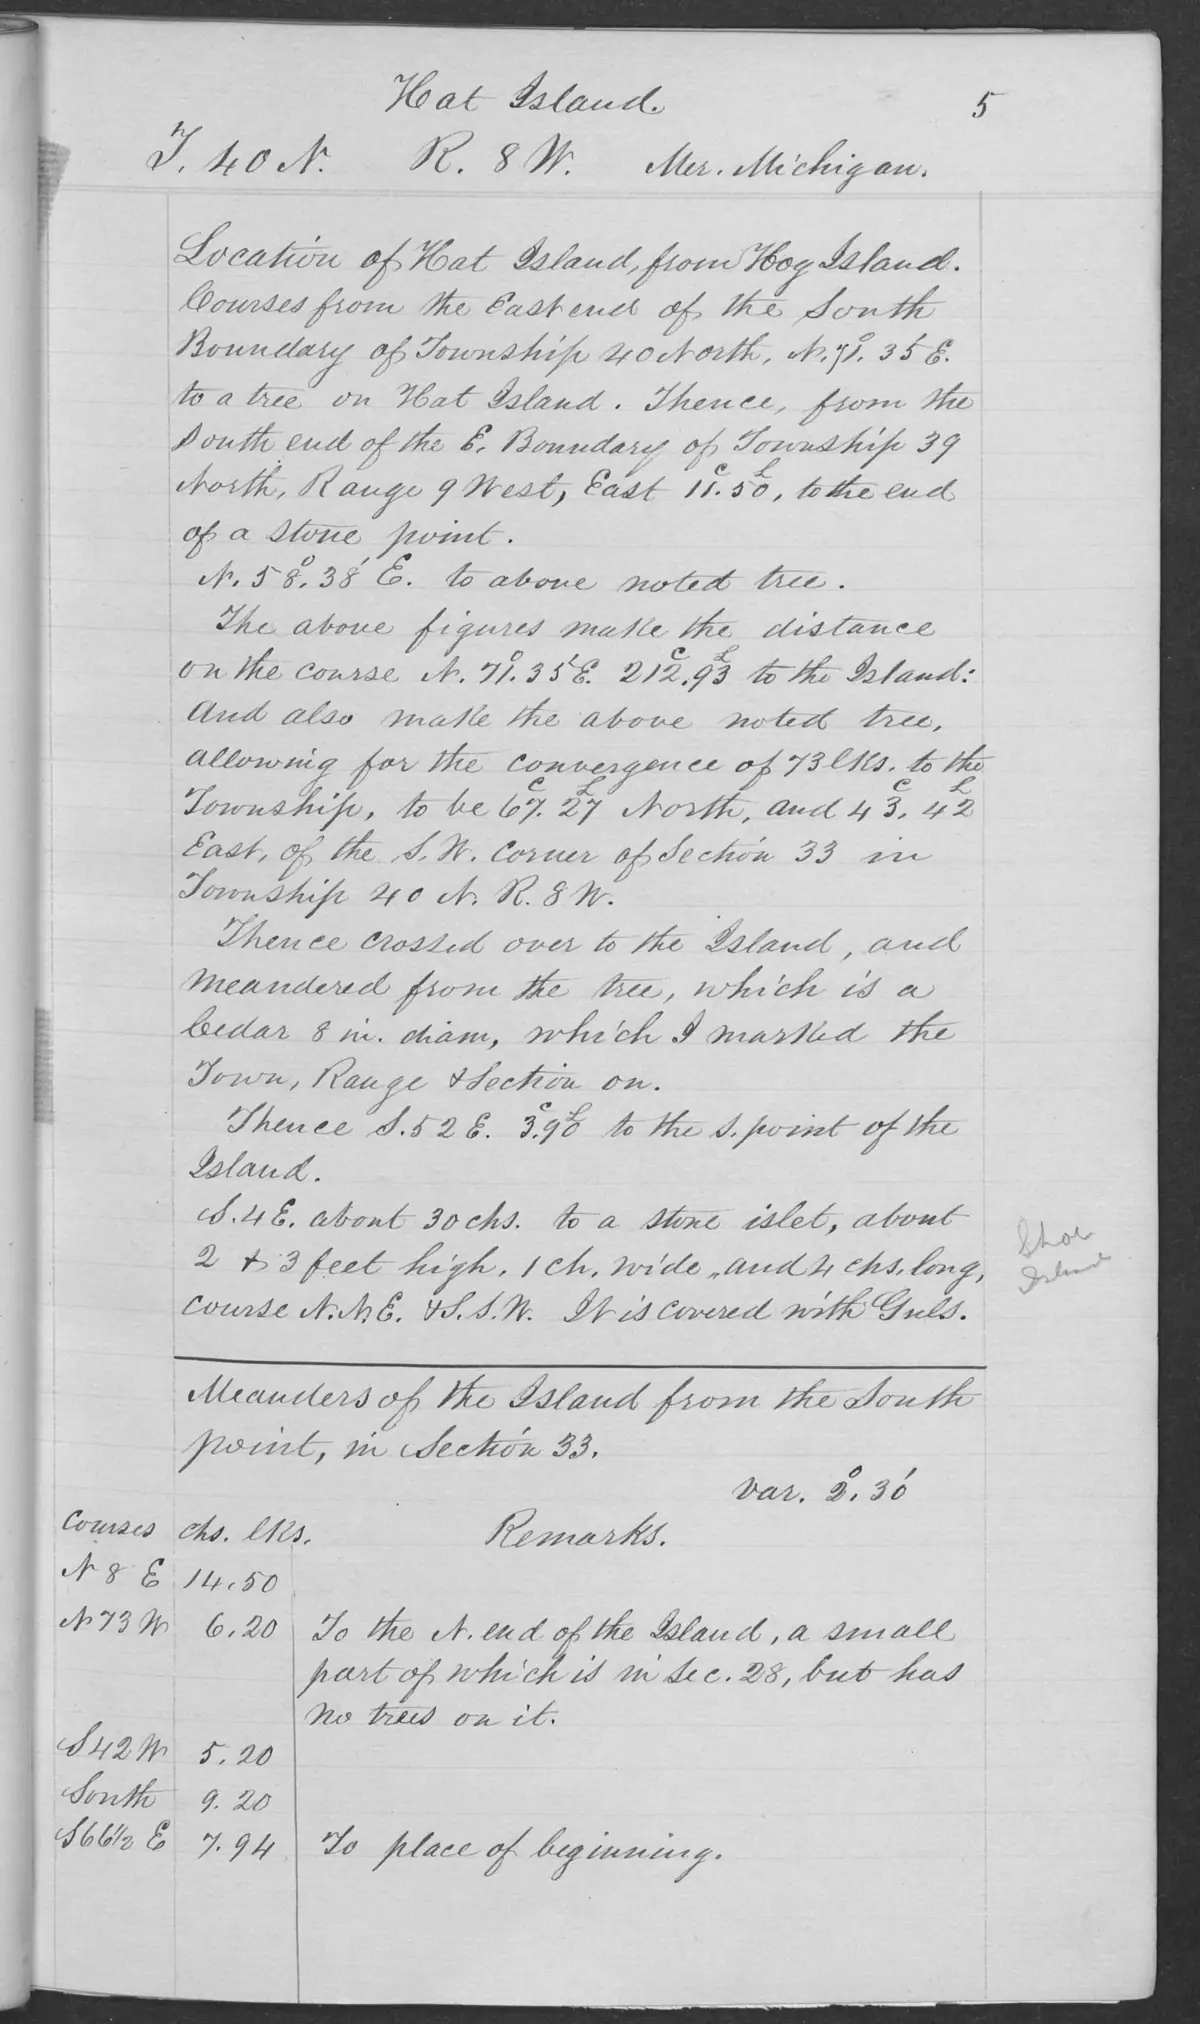 Hat Island. 5
T. 40 N. R. 8 W. Mer. Michigan.
Location of Hat Island, from Hog Island.
Courses from the East end of the South
Boundary of Township 40 North, N. 71°. 35' E.
to a tree on Hat Island. Thence, from the
South end of the E. Boundary of Township 39
North, Range 9 West, East 11.ᶜ50ᴸ, to the end
of a stone point.
N. 58°. 38' E. to above noted tree.
The above figures make the distance
on the course N. 71°. 35' E. 212.ᶜ93ᴸ to the Island:
And also make the above noted tree,
allowing for the convergence of 73 lks. to the
Township, to be 67.ᶜ27ᴸ North, and 43.ᶜ42ᴸ
East, of the S. W. corner of Section 33 in
Township 40 N. R. 8 W.
Thence crossed over to the Island, and
meandered from the tree, which is a
Cedar 8 in. diam, which I marked the
Town, Range & Section on.
Thence S. 52 E. 3.ᶜ90ᴸ to the S. point of the
Island.
S. 4 E. about 30 chs. to a stone islet, about
2 & 3 feet high, 1 ch. wide, and 4 chs. long,
course N. N. E. & S. S. W. It is covered with Guls.
Shoe
Island
Meanders of the Island from the South
point, in Section 33.
Var. 2°. 30'
Courses chs. lks. Remarks.
N 8 E 14.50
N 73 W 6.20 To the N. end of the Island, a small
part of which is in Sec. 28, but has
no trees on it.
S 42 W 5.20
South 9.20
S 66 1/2 E 7.94 To place of beginning.